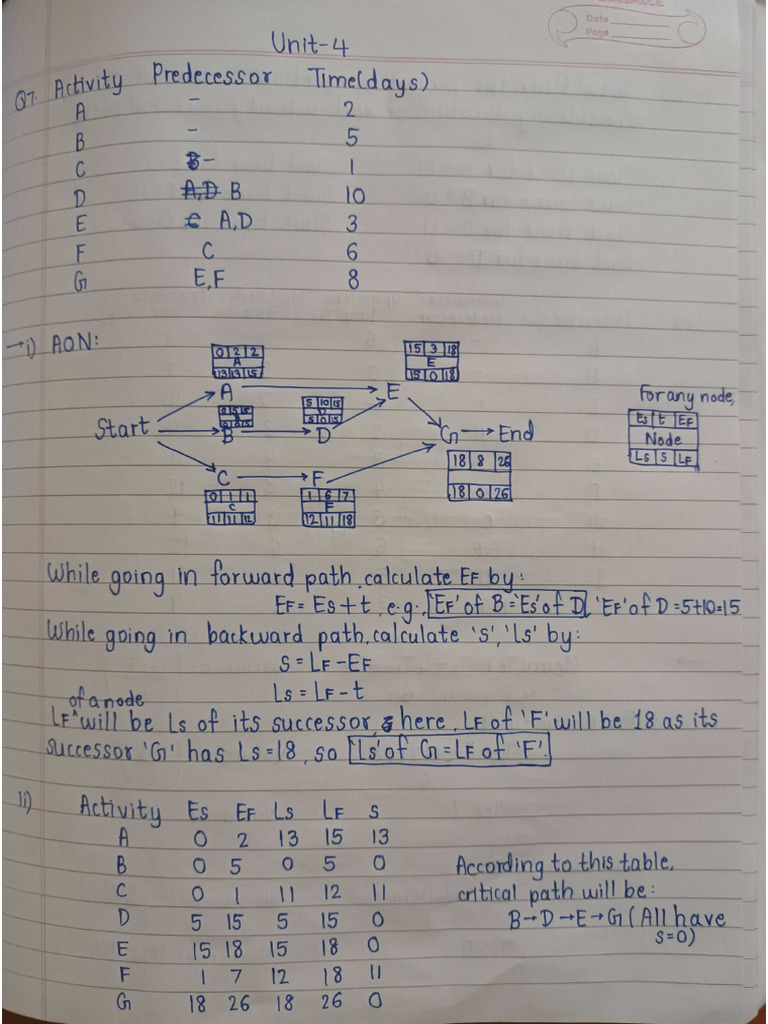 Date
Page
Unit-4
Q7. Activity Predecessor Time(days)
A - 2
B - 5
C - 1
D B 10
E A,D 3
F C 6
G E,F 8
→i) AON:
0 2 2
A
13 13 15
15 3 18
E
15 0 18
A E
0 5 5
B
0 0 5
5 10 15
D
5 0 15
Start B D G → End
For any node,
Es t EF
Node
Ls S LF
18 8 26
18 0 26
C F
0 1 1
C
11 11 12
1 6 7
F
12 11 18
While going in forward path, calculate EF by:
EF = Es + t, e.g., 'EF' of B = 'Es' of D, 'EF' of D = 5+10=15
While going in backward path, calculate 's', 'Ls' by:
S = LF - EF
Ls = LF - t
of a node
LF ^ will be Ls of its successor, here, LF of 'F' will be 18 as its
successor 'G' has Ls = 18, so 'Ls' of G = LF of 'F'.
ii) Activity Es EF Ls LF S
A 0 2 13 15 13
B 0 5 0 5 0
C 0 1 11 12 11
D 5 15 5 15 0
E 15 18 15 18 0
F 1 7 12 18 11
G 18 26 18 26 0
According to this table,
critical path will be:
B→D→E→G (All have
S=0)